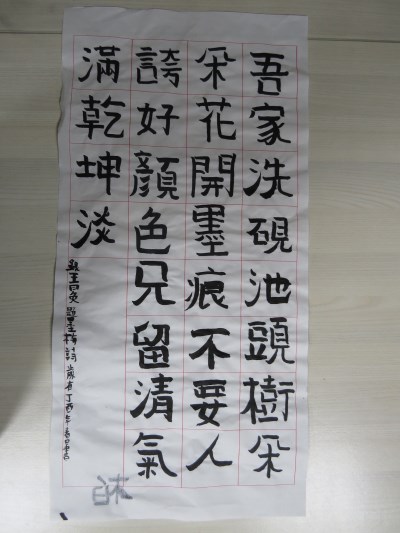 吾家洗硯池頭樹朵
朵花開墨痕不要人
誇好顏色只留清氣
滿乾坤淡
錄王冕題墨梅詩 歲在丁酉年春